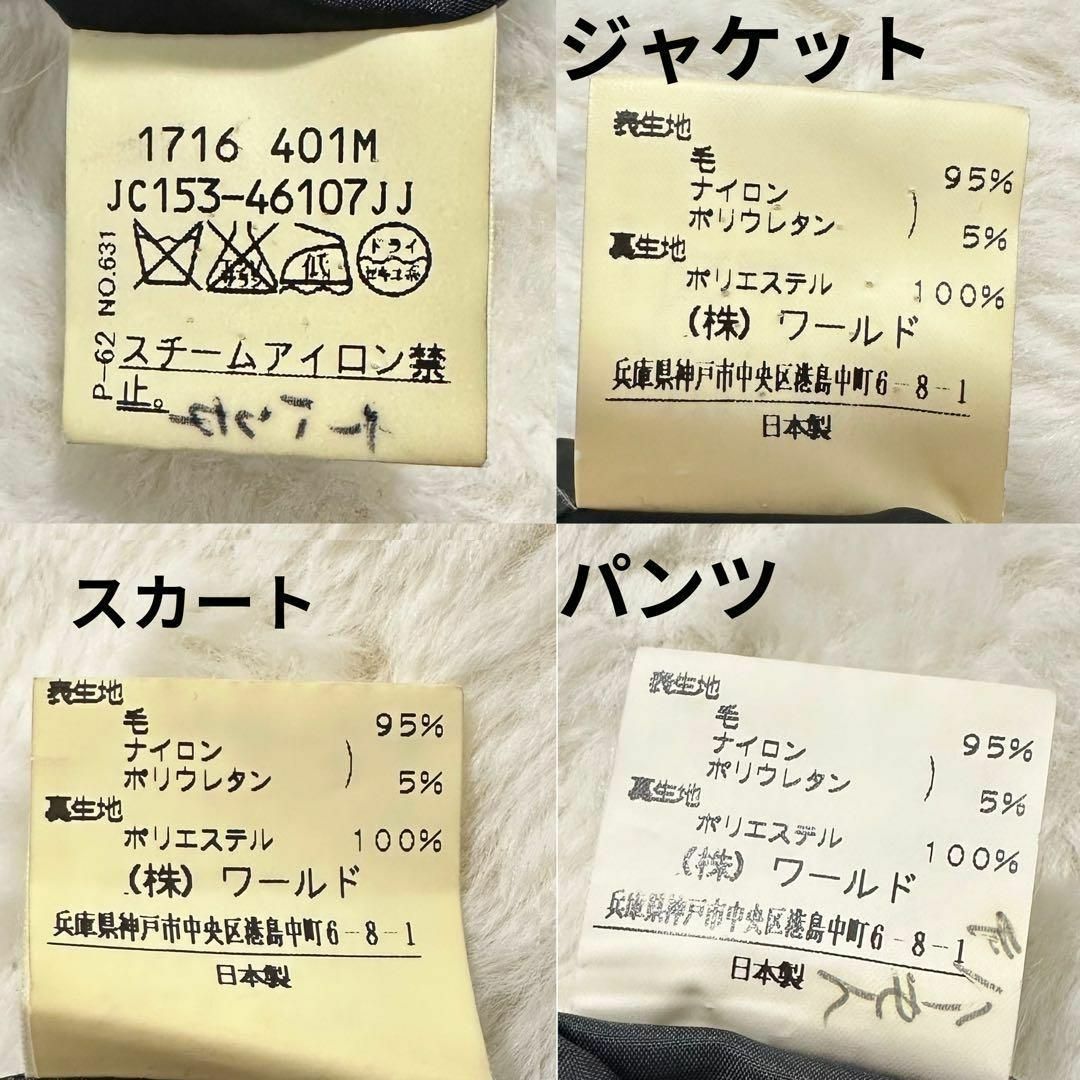 1716 401M
JC153-46107JJ
エンソ
サラシ
低
ドライ
セキユ系
P-62 NO.631
スチームアイロン禁
止。
ジャケット
表生地
毛 95%
ナイロン
ポリウレタン ) 5%
裏生地
ポリエステル 100%
(株) ワールド
兵庫県神戸市中央区港島中町6-8-1
日本製
スカート
表生地
毛 95%
ナイロン
ポリウレタン ) 5%
裏生地
ポリエステル 100%
(株) ワールド
兵庫県神戸市中央区港島中町6-8-1
日本製
パンツ
表生地
毛 95%
ナイロン
ポリウレタン ) 5%
裏生地
ポリエステル 100%
(株) ワールド
兵庫県神戸市中央区港島中町6-8-1
日本製